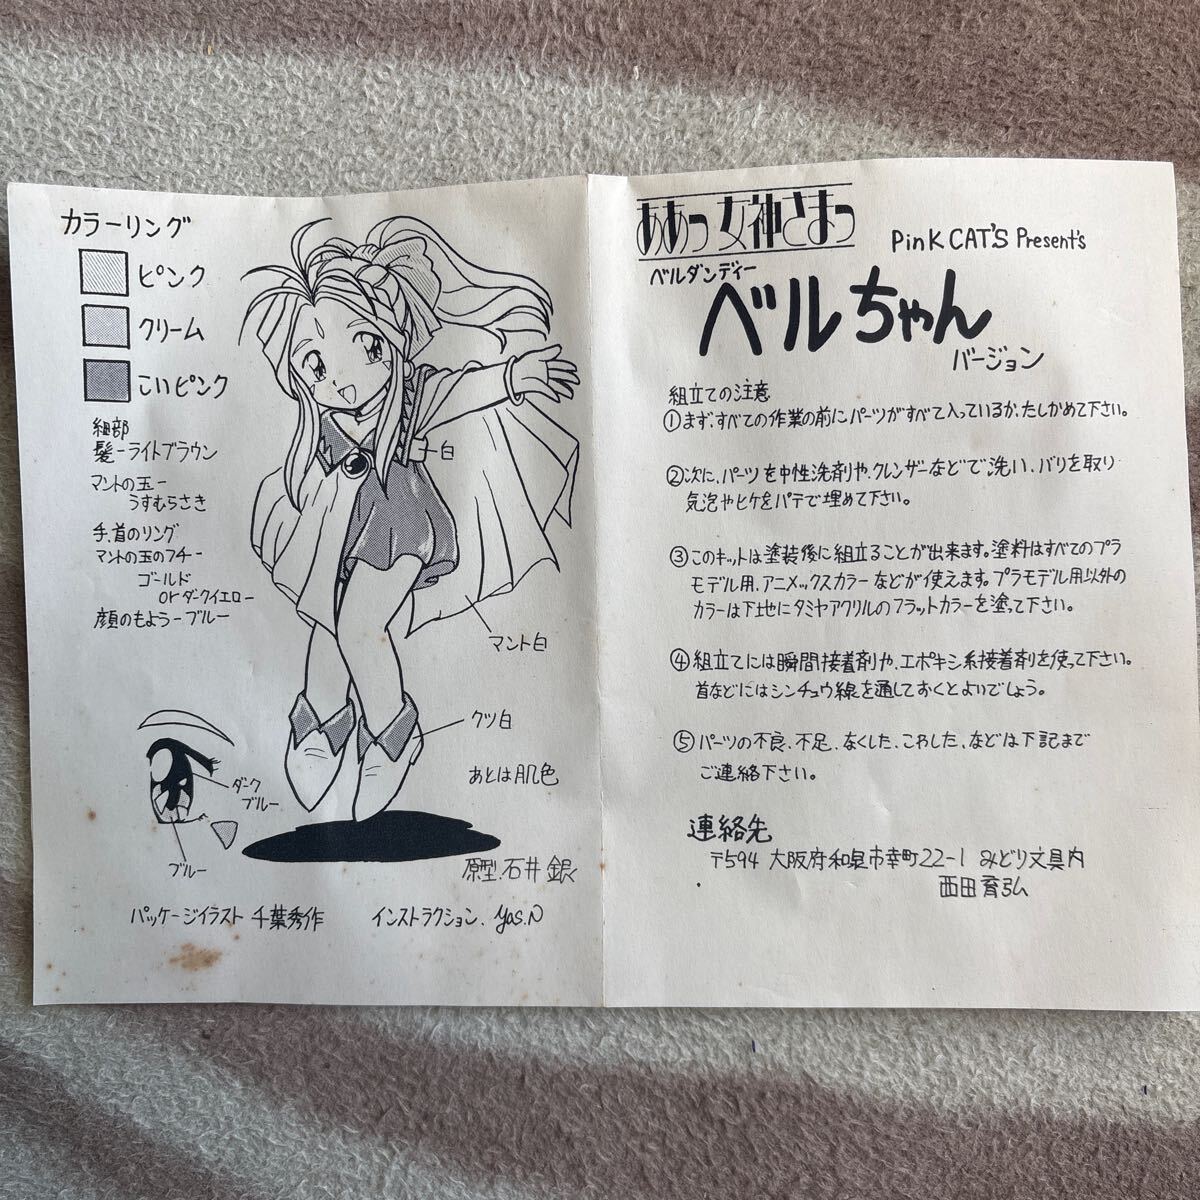 カラーリング
ピンク
クリーム
こいピンク
細部
髪ーライトブラウン
マントの玉ー
うすむらさき
手,首のリング
マントの玉のフチー
ゴールド
orダークイエロー
顔のもようーブルー
白
マント白
クツ白
あとは肌色
ダーク
ブルー
ブルー
原型.石井 銀
パッケージイラスト 千葉秀作
インストラクション. Yas.N
ああっ女神さまっ
PinK CAT'S Present's
ベルダンディー
ベルちゃん
バージョン
組立ての注意
①まず、すべての作業の前にパーツがすべて入っているか、たしかめて下さい。
②次に、パーツを中性洗剤や、クレンザーなどで洗い、バリを取り
気泡やヒケをパテで埋めて下さい。
③このキットは塗装後に組立ることが出来ます。塗料はすべてのプラ
モデル用、アニメックスカラーなどが使えます。プラモデル用以外の
カラーは下地にタミヤアクリルのフラットカラーを塗って下さい。
④組立てには瞬間接着剤や、エポキシ系接着剤を使って下さい。
首などにはシンチュウ線を通しておくとよいでしょう。
⑤パーツの不良、不足、なくした、こわした、などは下記まで
ご連絡下さい。
連絡先
〒594 大阪府和泉市幸町22-1 みどり文具内
西田育弘